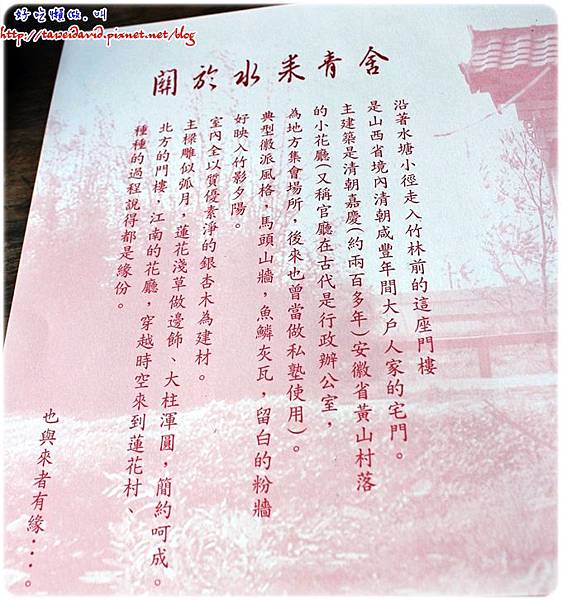 好吃懶做.叫
http://taweidavid.pixnet.net/blog
關於水耒青舍
沿著水塘小徑走入竹林前的這座門樓
是山西省境內清朝咸豐年間大戶人家的宅門。
主建築是清朝嘉慶(約兩百多年)安徽省黃山村落
的小花廳(又稱官廳在古代是行政辦公室，
為地方集會場所，後來也曾當做私塾使用)。
典型徽派風格，馬頭山牆，魚鱗灰瓦，留白的粉牆
好映入竹影夕陽。
室內全以質優素淨的銀杏木為建材。
主樑雕似弧月，蓮花淺草做邊飾、大柱渾圓，簡約呵成。
北方的門樓，江南的花廳，穿越時空來到蓮花村、
種種的過程說得都是緣份。
也與來者有緣····。